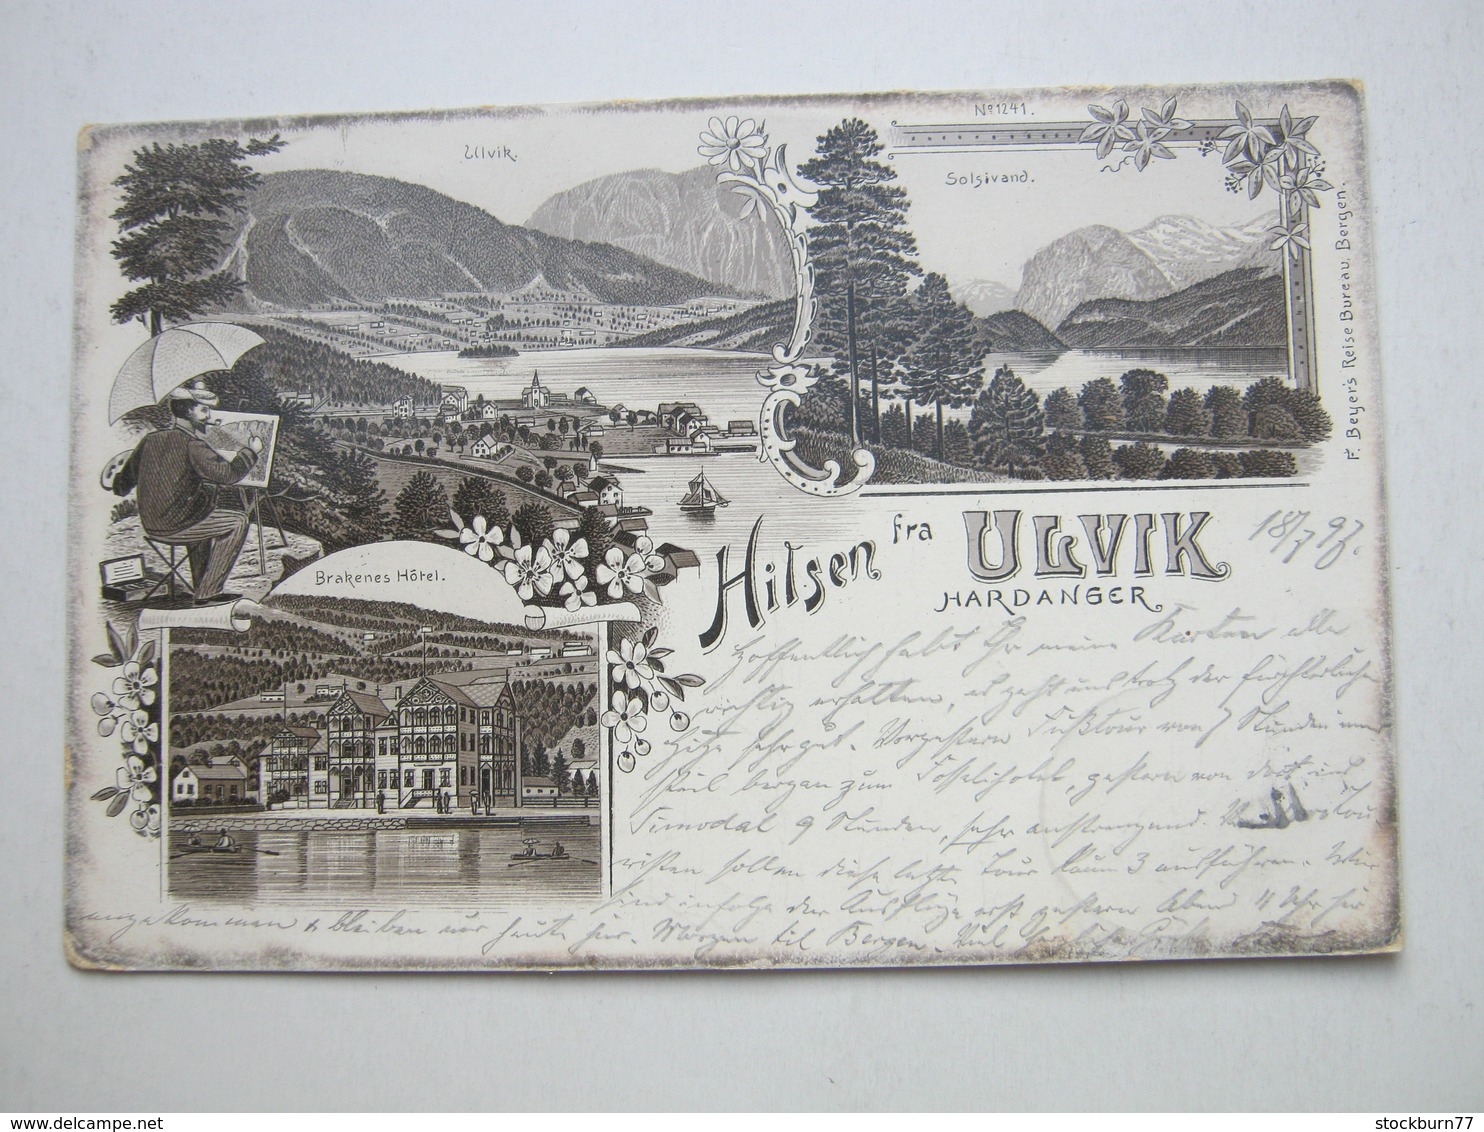 Ulvik.
Nº 1241.
Solsivand.
F. Beyer's Reise Bureau, Bergen.
Brakenes Hôtel.
Hilsen fra ULVIK
HARDANGER
18/7 97.
Hoffentlich habt Ihr meine Karten alle
richtig erhalten, es geht uns trotz der fürchterlichen
Hitze sehr gut. Vorgestern Fußtour von 7 Stunden
steil bergan zum hotel, gestern von dort ins
Simodal 9 Stunden, sehr anstrengend.
sollen diese letzte Tour kaum 3 ausführen. Wir
sind infolge der Ausflüge erst gestern Abend 11 Uhr hier
angekommen & bleiben nur heute hier. Morgen til Bergen. Viel herzliche
stockburn77